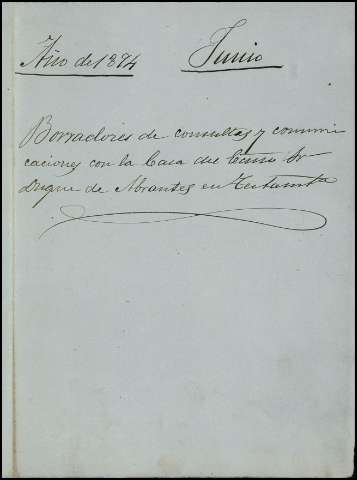 Año de 1894 Junio
Borradores de consultas y comuni
caciones con la Casa del Excmo Sr
Duque de Abrantes en